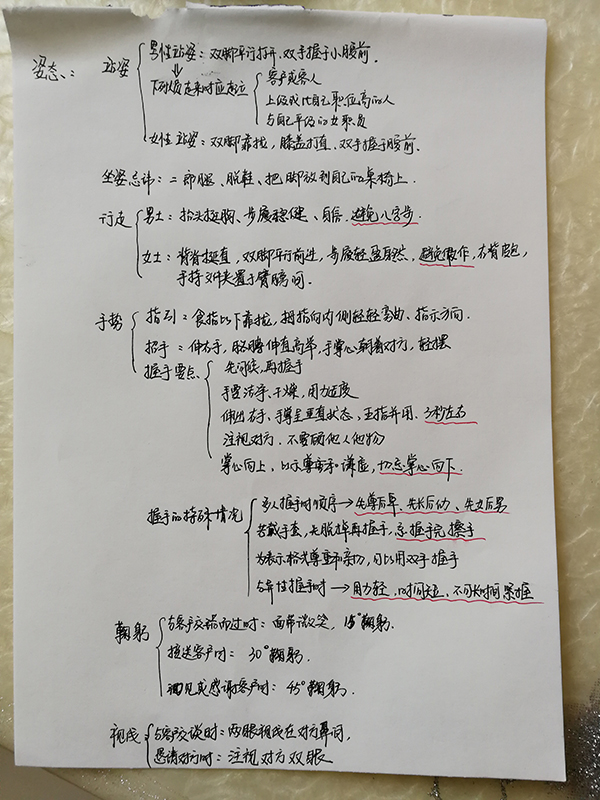 姿态：
站姿
男性站姿：双脚平行打开、双手握于小腹前.
下列人员走来时应起立
客户或客人
上级或比自己职位高的人
与自己平级的女职员
女性站姿：双脚靠拢，膝盖打直、双手握于腹前.
坐姿忌讳：二郎腿、脱鞋、把脚放到自己的桌椅上.
行走
男士：抬头挺胸、步履稳健、自信、避免八字步.
女士：背脊挺直，双脚平行前进，步履轻盈自然，避免做作，右背包，
手持文件夹置于臂膀间.
手势
指引：食指以下靠拢，拇指向内侧轻轻弯曲、指示方向.
招手：伸右手，胳膊伸直高举，手掌心朝着对方，轻摆
握手要点
先问候，再握手
手要洁净、干燥，用力适度
伸出右手、手掌呈垂直状态，五指并用，3秒左右
注视对方、不要顾他人他物
掌心向上，以示尊重和谦虚，切忌掌心向下.
握手的特殊情况
多人握手时顺序→先尊后卑、先长后幼、先女后男
若戴手套，先脱掉再握手，忌握手完擦手
为表示格式尊重和亲切，可以用双手握手
与异性握手时→用力轻、时间短、不可长时间紧握
鞠躬
与客户交错而过时：面带微笑，15°鞠躬.
接送客户时：30°鞠躬.
遇见或感谢客户时：45°鞠躬.
视线
与客户交谈时：两眼视线在对方鼻间，
恳请对方时：注视对方双眼